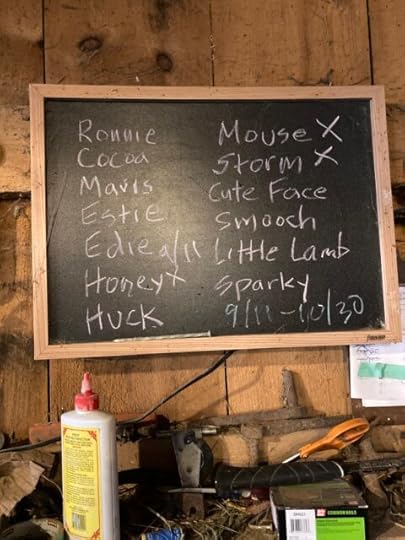 Ronnie
Cocoa
Mavis
Estie
Edie 9/11
Honey X
Huck
Mouse X
Storm X
Cute Face
Smooch
Little Lamb
Sparky
9/11 - 10/30
COMMON NAILS